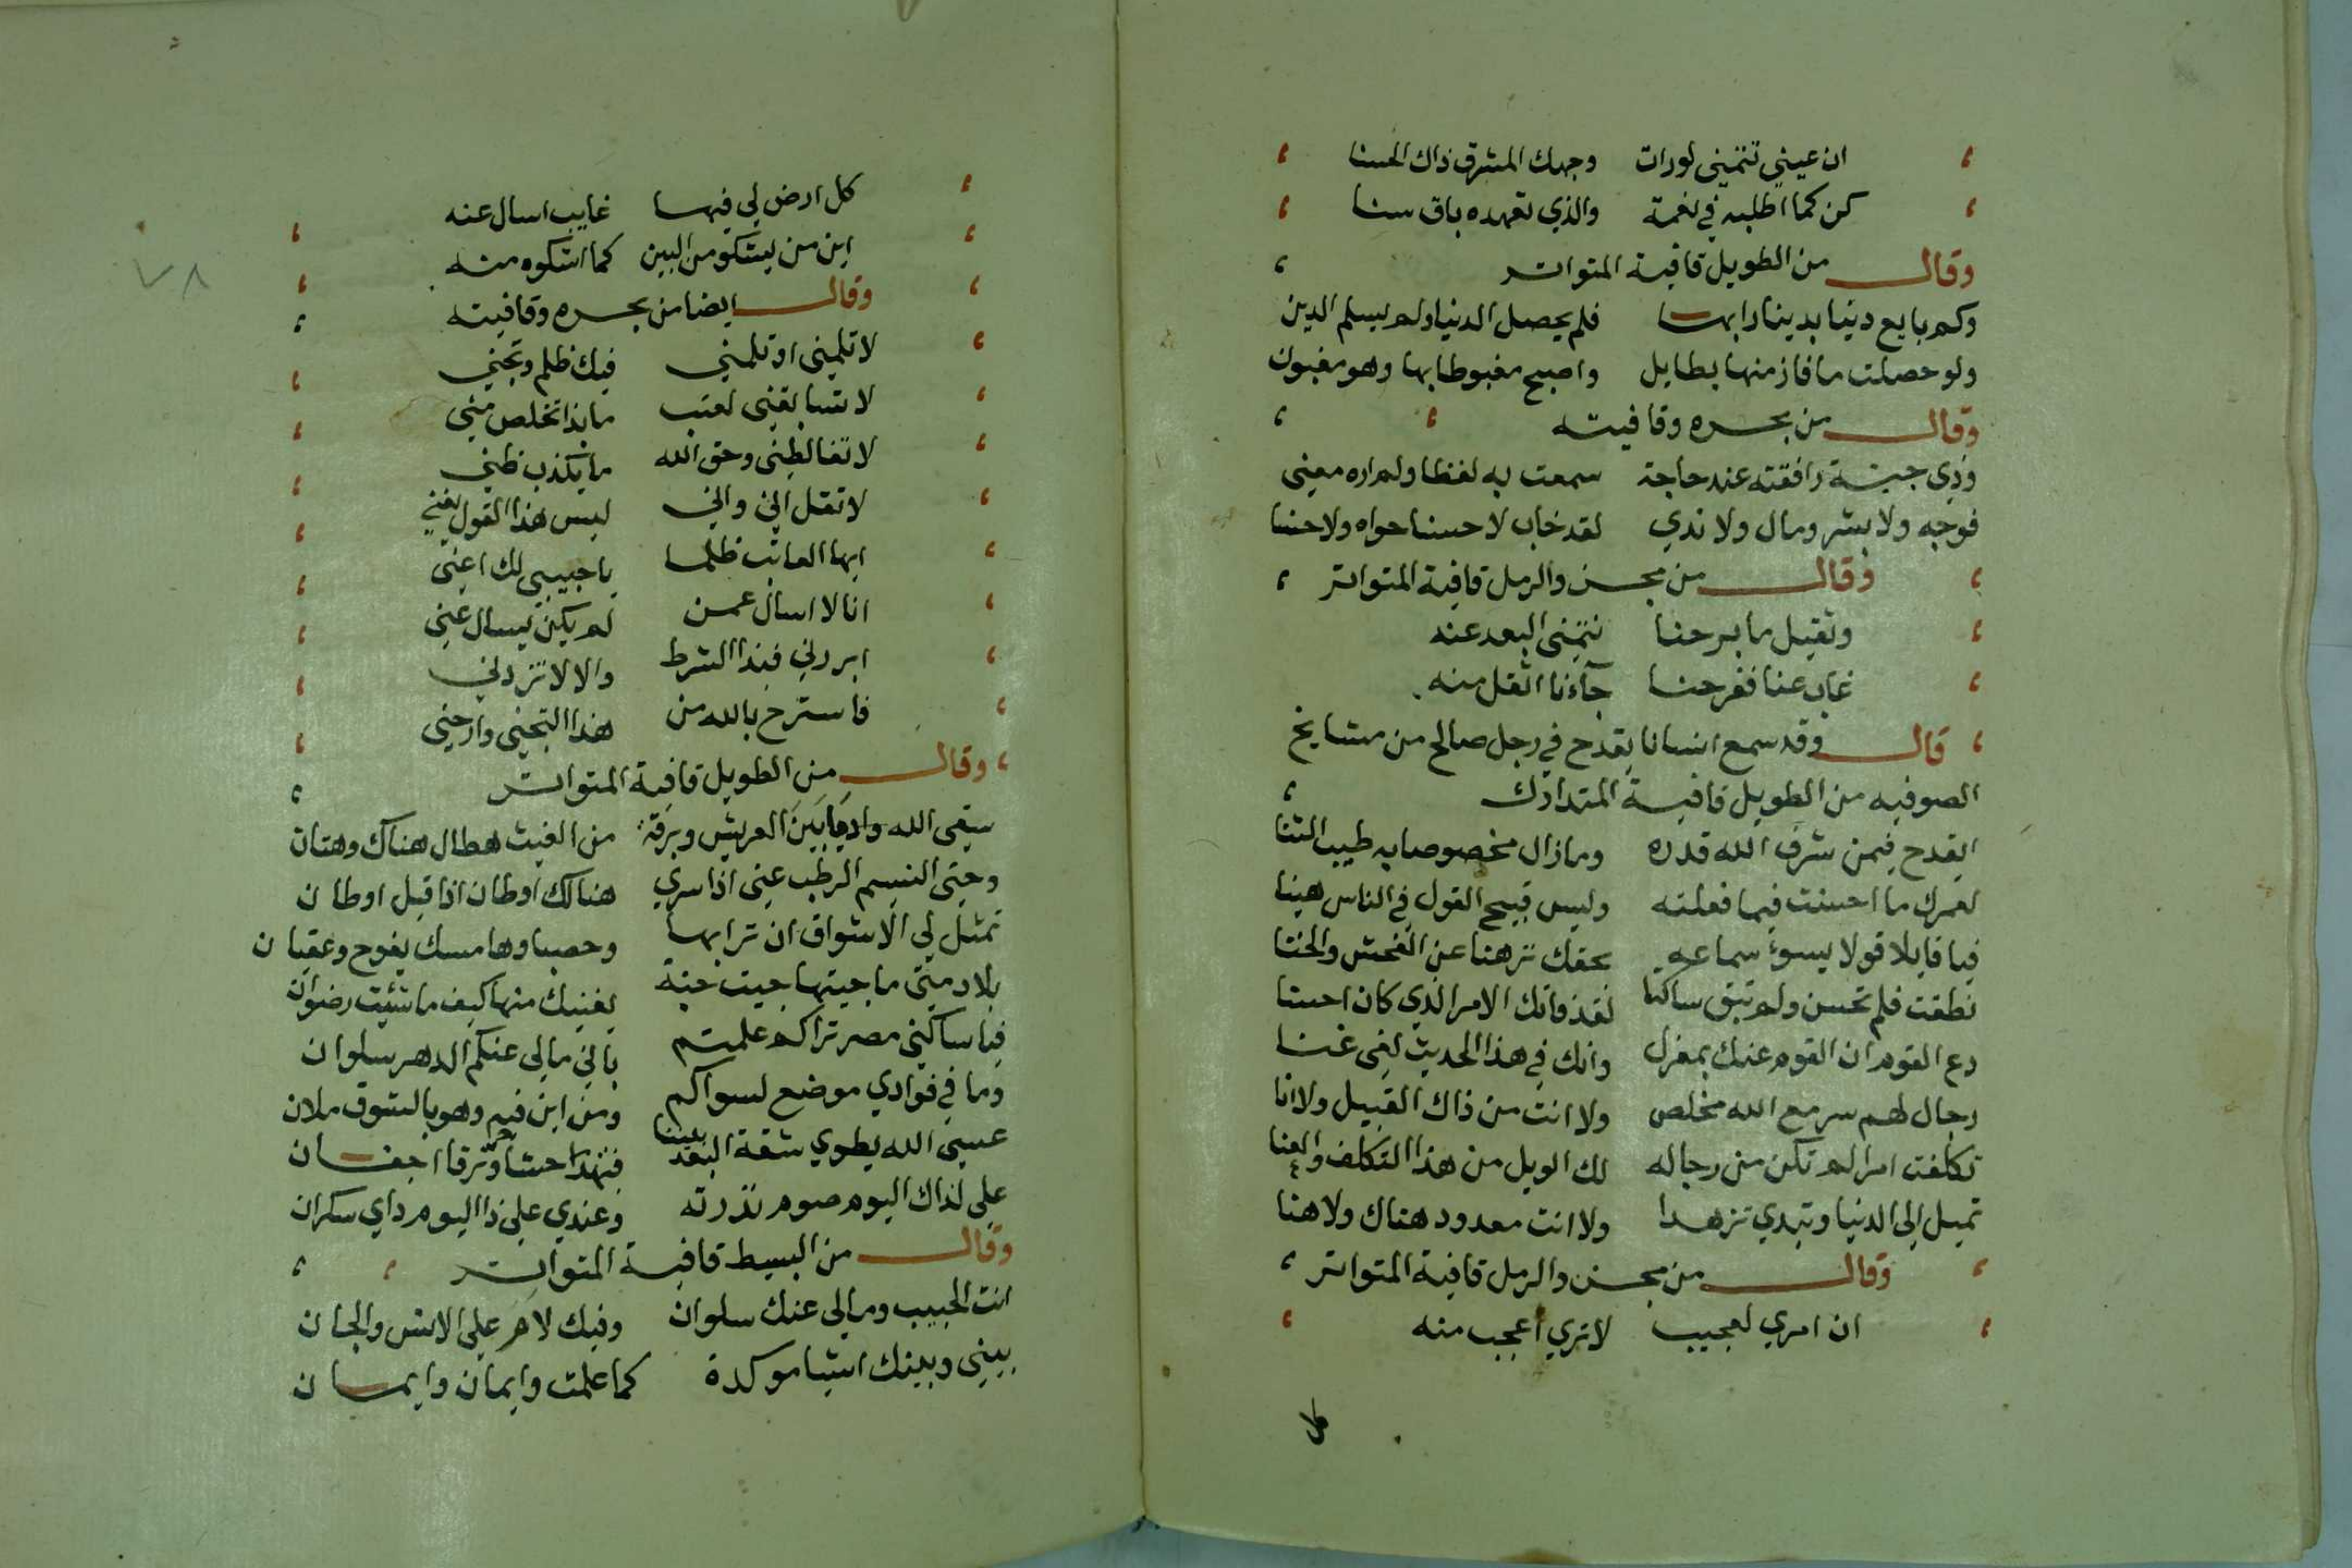 ان عيني تتمني لورات وجهك المشرق ذاك الحسنا
كن كما اطلبه في نعمة والذي تعهده باق سنا
وقال من الطويل قافية المتواتر
وكم بايع دنيا بدينا رابها فلم يحصل الدنيا ولم يسلم الدين
ولو حصلت ما فاز منها بطايل واصبح مغبوطا بها وهو مغبون
وقال من بحره وقافيته
وذي جبة رافقته عند حاجة سمعت به لفظا ولم اره معني
فوجه ولا بشر ومال ولا ندي لقد خاب لا حسنا حواه ولا حسنا
وقال من مجزو الرمل قافية المتواتر
وثقيل ما برحنا نتمني البعد عنه
غاب عنا ففرحنا جآءنا اثقل منه
قال وقد سمع انسانا يقدح في رجل صالح من مشايخ
الصوفيه من الطويل قافية المتدارك
اتقدح فيمن شرف الله قدره وما زال مخصوصا به طيب الثنا
لعمرك ما احسنت فيما فعلته وليس قبيح القول في الناس هينا
فيا قايلا قولا يسوء سماعه بحقك نزهنا عن الفحش والخنا
نطقت فلم تحسن ولم تبق ساكتا لقد فاتك الامر الذي كان احسنا
دع القوم ان القوم عنك بمعزل وانك في هذا الحديث لفي غنا
رجال لهم سر مع الله مخلص ولا انت من ذاك القبيل ولا انا
تكلفت امرا لم تكن من رجاله لك الويل من هذا التكلف والعنا
تميل الي الدنيا وتبدي تزهدا ولا انت معدود هناك ولا هنا
وقال من مجزو الرمل قافية المتواتر
ان امري لعجيب لا تري اعجب منه
كل ارض لي فيها غايب اسال عنه
اين من يشكو من البين كما اشكوه منه
وقال ايضا من بحره وقافيته
لا تلمني او تلمني فيك ظلم وتجني
لا تسابقني لعتب ما بذا تخلص مني
لا تغالطني وحق الله ما يكذب ظني
لا تقل اني واني ليس هذا القول يغني
ايها العاتب ظلما يا حبيبي لك اعني
انا لا اسال عمن لم يكن يسال عني
ابردني فبذا الشرط والا لا تزدني
فاسترح بالله من هذا التجني وارحني
وقال من الطويل قافية المتواتر
سقي الله واديا بين العريش وبرقة من الغيث هطال هناك وهتان
وحتي النسيم الرطب عني اذا سري هنالك اوطان اذا قيل اوطان
تمثل لي الاشواق ان ترابها وحصباوها مسك يفوح وعقيان
بلاد متي ما جيتها جيت جنة لعينيك منها كيف ما شئت رضوان
فيا ساكني مصر تراكم علمتم باني مالي عنكم الدهر سلوان
وما في فوادي موضع لسواكم ومن اين فيه وهو بالشوق ملان
عسي الله يطوي شقة البعد بيننا فتهدا حشا وترقا اجفان
علي لذاك اليوم صوم نذرته وعندي علي ذا اليوم راي سكران
وقال من البسيط قافية المتواتر
انت الحبيب ومالي عنك سلوان وفيك لام علي الانس والجان
بيني وبينك اشيا موكدة كما علمت وايمان وايمان